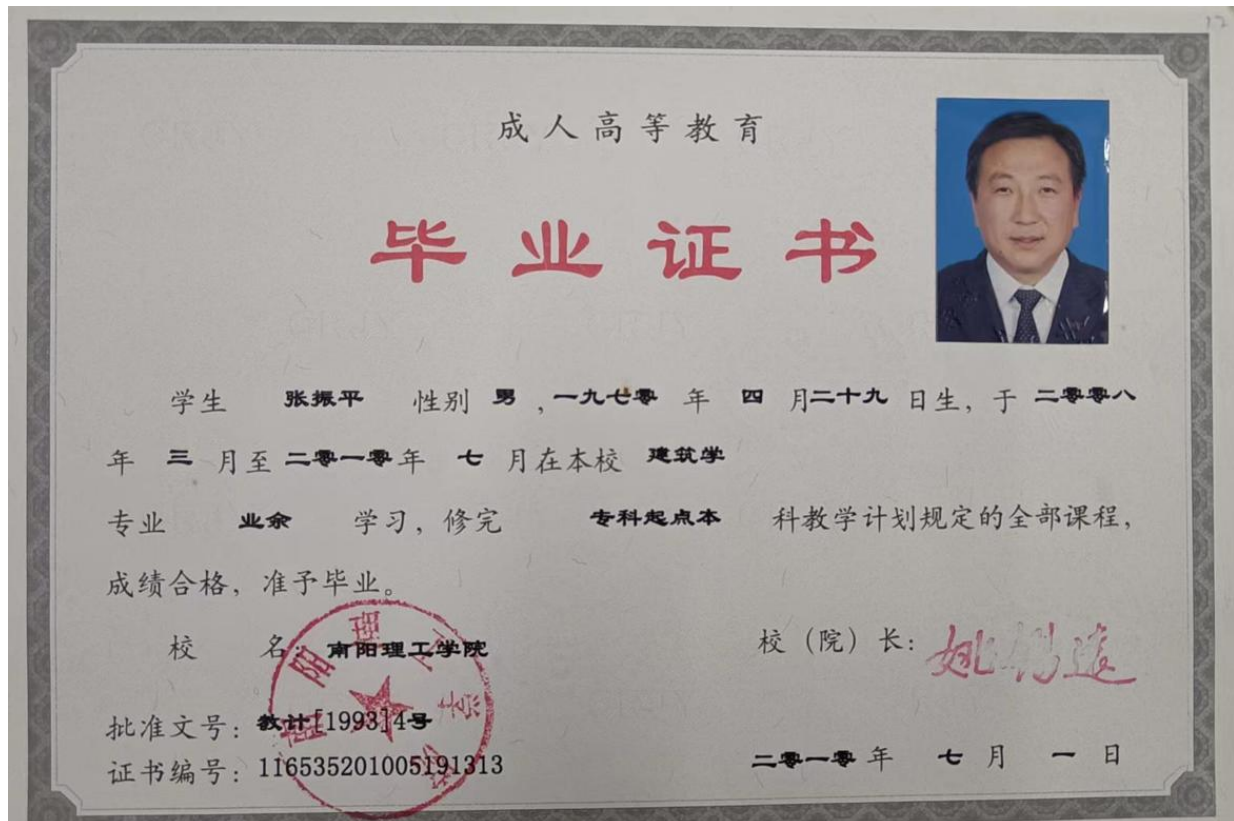 12
成人高等教育
毕业证书
学生 张振平 性别 男,一九七零 年 四 月二十九 日生,于 二零零八
年 三 月至 二零一零年 七 月在本校 建筑学
专业 业余 学习,修完 专科起点本 科教学计划规定的全部课程,
成绩合格,准予毕业。
校 名:南阳理工学院
校(院)长:
批准文号:教计[1993]4号
证书编号:116535201005191313
二零一零 年 七 月 一 日